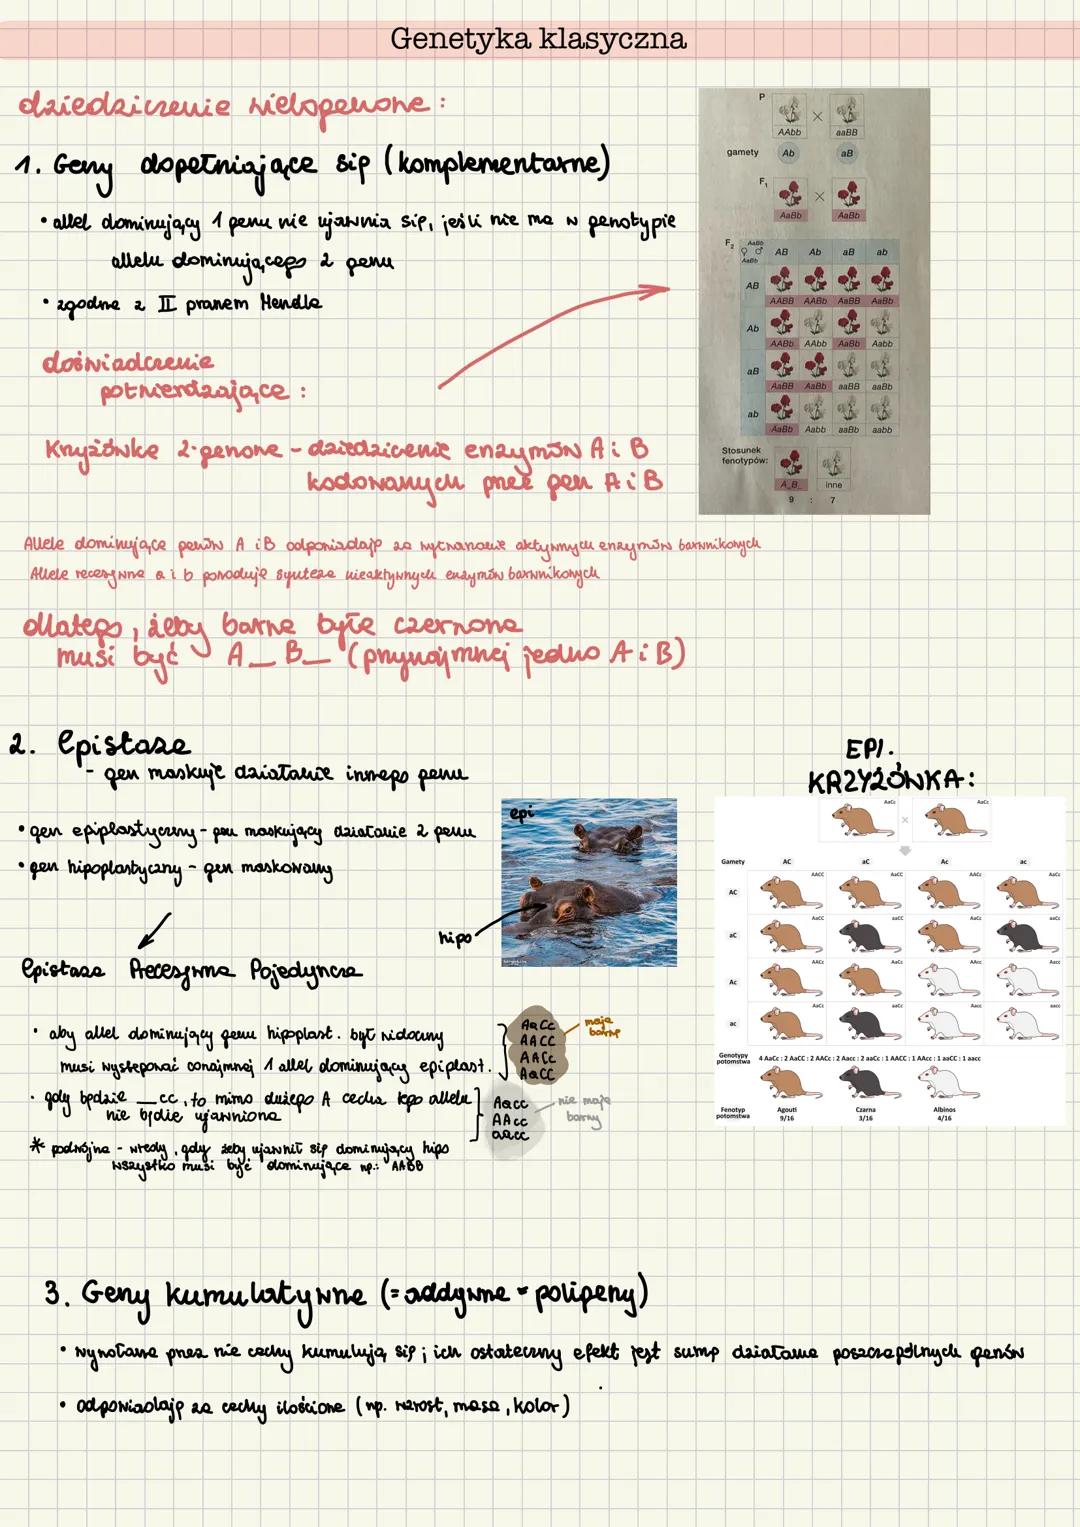 Genetyka klasyczna
dziedziczenie wielogenowe:
1. Geny dopełniające się (komplementarne)
• allel dominujący 1 genu nie ujawnia się, jeśli nie ma w genotypie
allelu dominującego 2 genu
• zgodne z II prawem Mendla
doświadczenie
potwierdzające:
Krzyżówka 2-genowa - dziedziczenie enzymów A i B
kodowanych przez gen A i B
Allele dominujące genów A i B odpowiadają za wytwarzanie aktywnych enzymów barwnikowych
Allele recesywne a i b powodują syntezę nieaktywnych enzymów barwnikowych
dlatego, żeby barwa była czerwona
musi być A_B_ (przynajmniej jedno A i B)
P
AAbb × aaBB
gamety Ab aB
F1
AaBb × AaBb
F2 AaBb ♀ ♂ AaBb
AB Ab aB ab
AB
AABB AABb AaBB AaBb
Ab
AABb AAbb AaBb Aabb
aB
AaBB AaBb aaBB aaBb
ab
AaBb Aabb aaBb aabb
Stosunek
fenotypów:
A_B_ inne
9 : 7
2. Epistaza
- gen maskuje działanie innego genu
• gen epiplastyczny - gen maskujący działanie 2 genu
• gen hipoplastyczny - gen maskowany
epi
hipo
Epistaza Recesywna Pojedyncza
• aby allel dominujący genu hipoplast. był widoczny
musi występować conajmniej 1 allel dominujący epiplast.
AaCc
AACC
AACc
AaCC
mają
barwę
• gdy będzie _cc, to mimo dużego A cecha tego allelu
nie będzie ujawniona
Aacc
AAcc
aacc
nie mają
barwy
* podwójna - wtedy, gdy żeby ujawnił się dominujący hipo
wszystko musi być dominujące np.: AABB
EPI.
KRZYŻÓWKA:
AaCc × AaCc
Gamety AC aC Ac ac
AC
AACC AaCC AACc AaCc
aC
AaCC aaCC AaCc aaCc
Ac
AACc AaCc AAcc Aacc
ac
AaCc aaCc Aacc aacc
Genotypy
potomstwa
4 AaCc : 2 AaCC : 2 AACc : 2 Aacc : 2 aaCc : 1 AACC : 1 AAcc : 1 aaCC : 1 aacc
Fenotyp
potomstwa
Agouti Czarna Albinos
9/16 3/16 4/16
3. Geny kumulatywne (= addywne = poligeny)
• wywołane przez nie cechy kumulują się; ich ostateczny efekt jest sumą działania poszczególnych genów
• odpowiadają za cechy ilościowe (np. wzrost, masa, kolor)